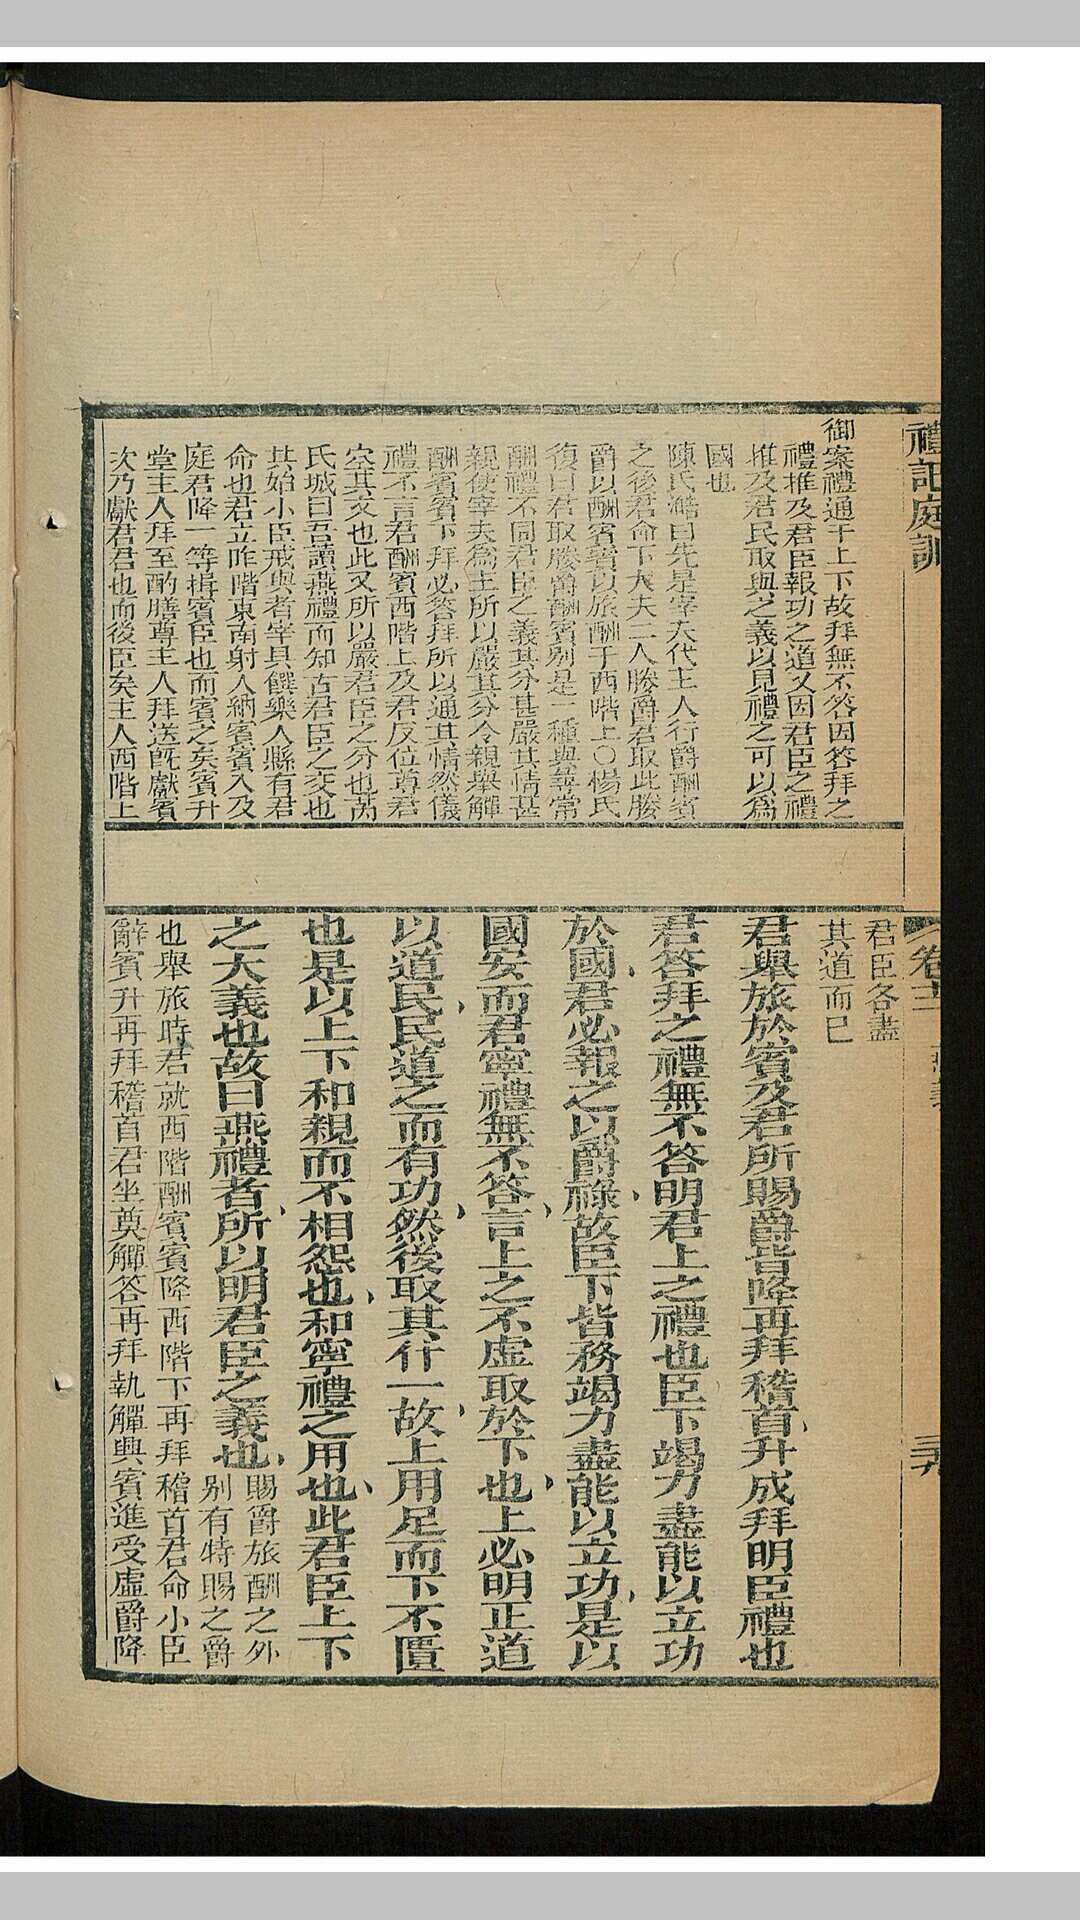 禮記庭訓
御案禮通乎上下故拜無不答因答拜之
禮推及君臣報功之道又因君臣之禮
推及君民取與之義以見禮之可以為
國也
陳氏澔曰先是宰夫代主人行爵酬賓
之後君命下大夫二人媵爵君取此媵
爵以酬賓賓以旅酬于西階上○楊氏
復曰君取媵爵酬賓別是一種與尋常
酬禮不同君臣之義其分甚嚴其情甚
親使宰夫為主所以嚴其分今親舉觶
酬賓賓下拜必答拜所以通其情然儀
禮不言君酬賓西階上及君反位尊君
空其文也此又所以嚴君臣之分也萬
氏城曰吾讀燕禮而知古君臣之交也
其始小臣戒與者宰具饌樂人縣有君
命也君立阼階東南射人納賓賓入及
庭君降一等揖賓臣也而賓之矣賓升
堂主人拜至酌膳尊主人拜送既獻賓
次乃獻君君也而後臣矣主人西階上
卷
君臣各盡
其道而已
君舉旅於賓及君所賜爵皆降再拜稽首升成拜明臣禮也
君答拜之禮無不答明君上之禮也臣下竭力盡能以立功
於國君必報之以爵祿故臣下皆務竭力盡能以立功是以
國安而君寧禮無不答言上之不虛取於下也上必明正道
以道民民道之而有功然後取其什一故上用足而下不匱
也是以上下和親而不相怨也和寧禮之用也此君臣上下
之大義也故曰燕禮者所以明君臣之義也
賜爵旅酬之外
別有特賜之爵
也舉旅時君就西階酬賓賓降西階下再拜稽首君命小臣
辭賓升再拜稽首君坐奠觶答再拜執觶興賓進受虛爵降